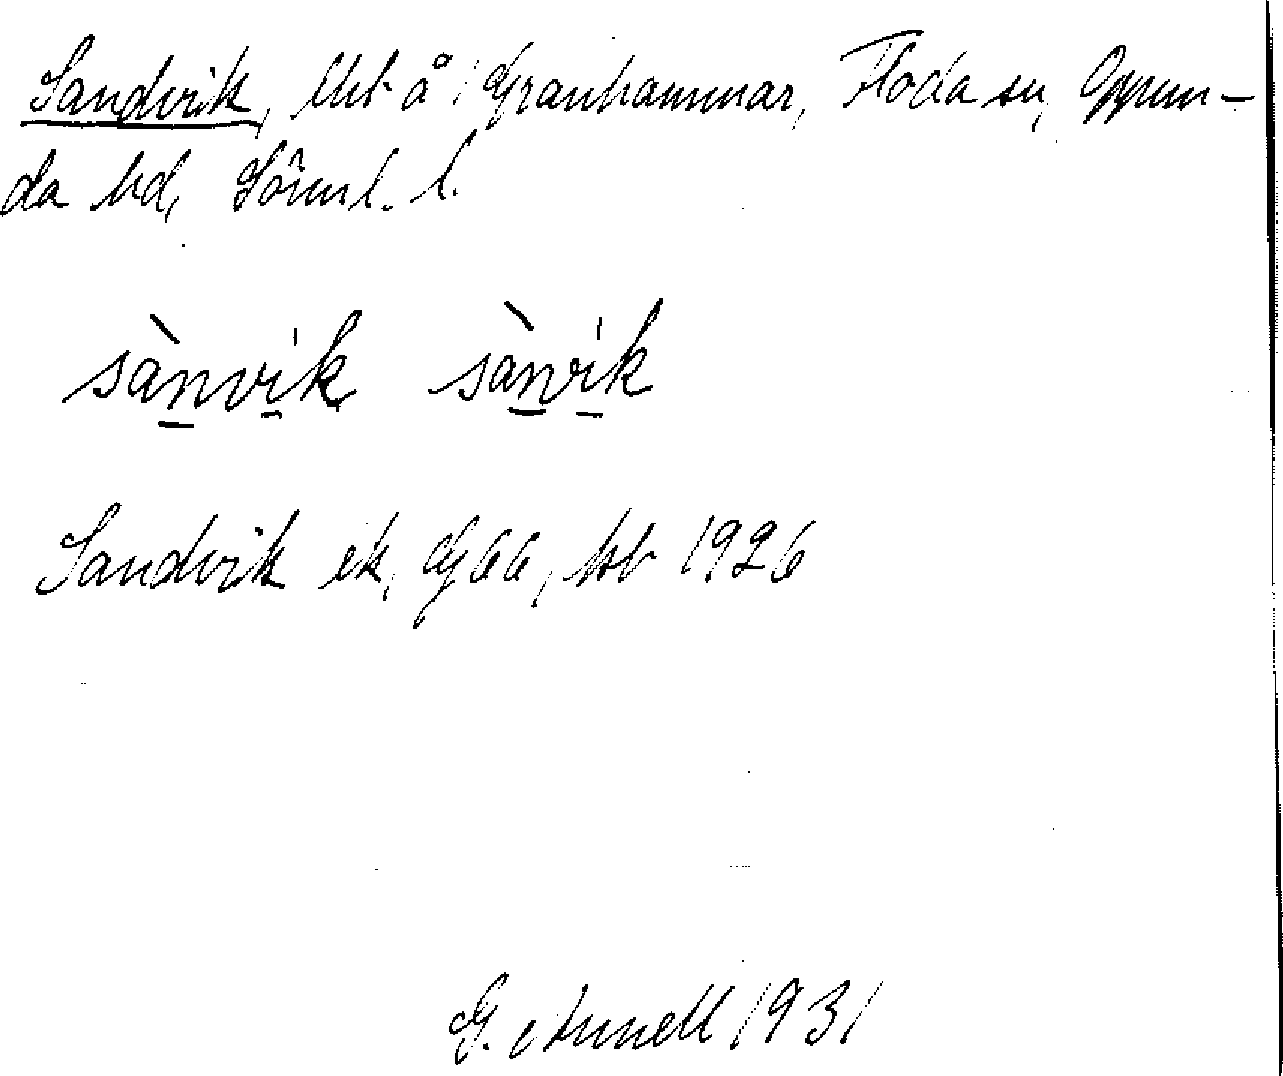 Sandvik, lht å Granhammar, Floda sn, Oppun-
da hd, Sörml. l.
sànvik sànvik
Sandvik ek, G66, hb 1926
G. 1931